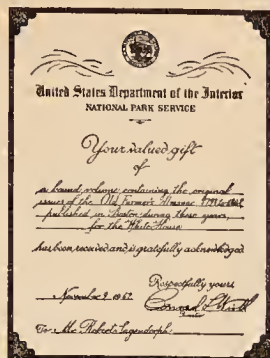 United States Department of the Interior
NATIONAL PARK SERVICE
Your valued gift
of
a bound volume containing the original
issues of the Old Farmer's Almanac
published in Boston during these years,
for the White House
has been received and is gratefully acknowledged
Respectfully yours
November 9 1961
Conrad L. Wirth
Director
To: Mr. Robert Sagendorph